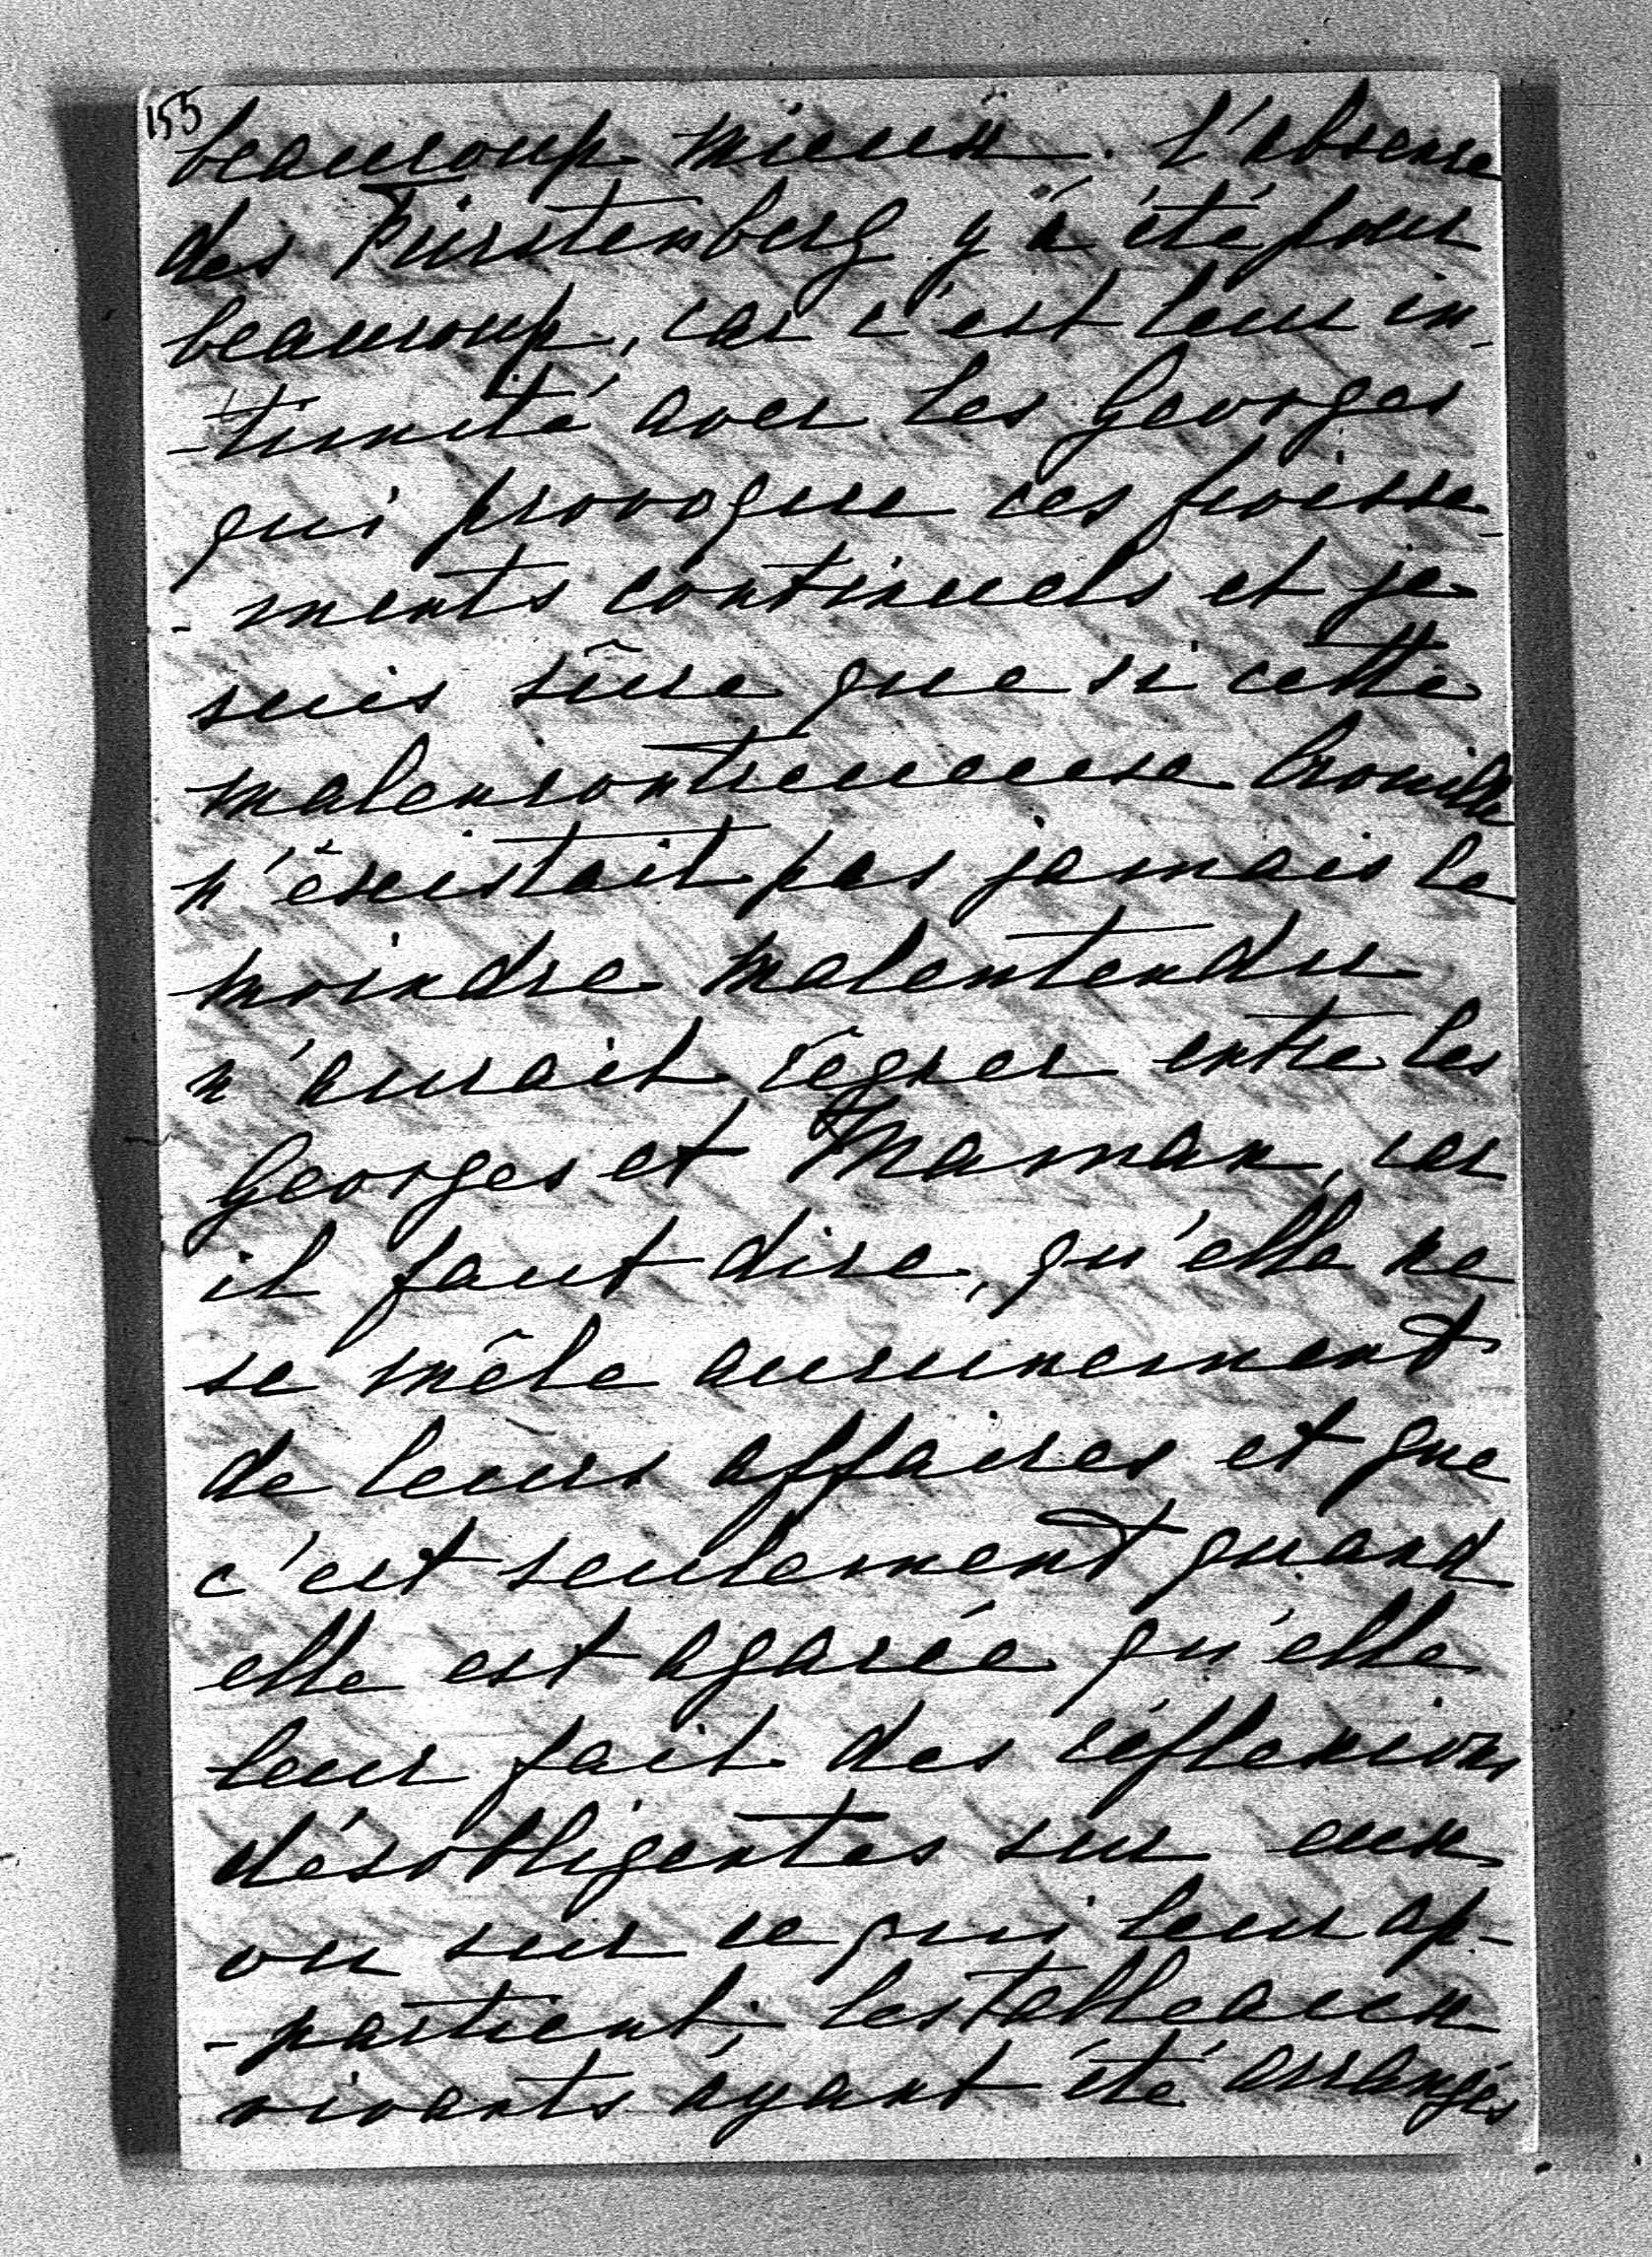 155
beaucoup mieux. L'absence
des Fürstenberg y a été pour
beaucoup, car c'est leur in-
-timité avec les Georges
qui provoque ces froisse-
-ments continuels et je
suis sûre que si cette
malencontreueuse brouille
n'éxistait pas jamais le
moindre malentendu
n'aurait régner entre les
Georges et Maman, car
il faut dire, qu'elle ne
se mêle aucunement
de leurs affaires et que
c'est seulement quand
elle est agacée qu'elle
leur fait des réflexions
désobligentes sur eux
ou sur ce qui leur ap-
-partient; les tableaux
vivants ayant été arrangés